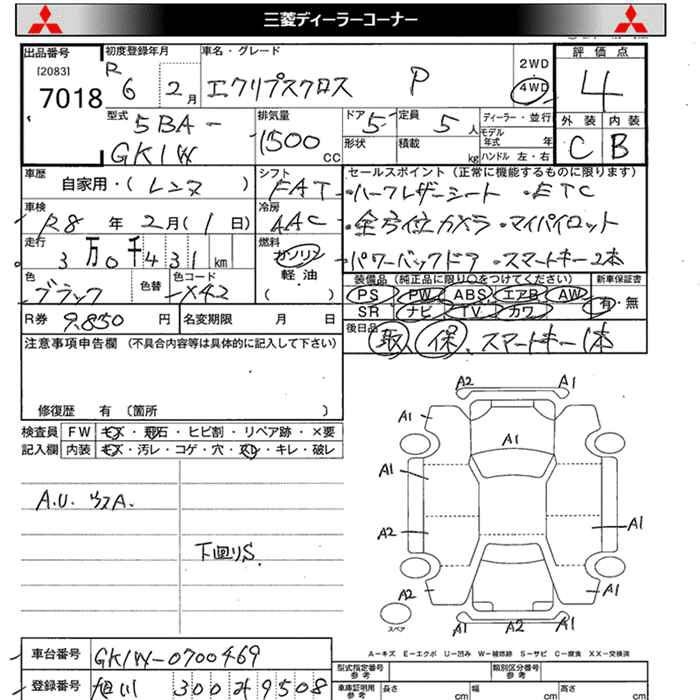 三菱ディーラーコーナー
出品番号 初度登録年月 車名・グレード 評価点
[2083] 7018
R6 2月 エクリプスクロス P 2WD 4WD 4
型式 排気量 ドア 定員 ディーラー・並行 外装 内装
5BA-GK1W 1500 CC 5 5人 モデル年式 年 C B
形状 積載 kg ハンドル 左・右
車歴 シフト セールスポイント (正常に機能するものに限ります)
自家用・(レンヌ) FAT ・ハーフレザーシート ・ETC
車検 冷房 ・全方位カメラ ・マイパイロット
R8年 2月(1日) AAC
走行 燃料 ・パワーバックドア ・スマートキー2本
3万0千431km ガソリン 軽油 ( )
色 色替 色コード 装備品 (純正品に限り○をつけてください) 新車保証書
ブラック X42 PS PW ABS エアB AW 有・無
SR ナビ TV カワ
R券 9,850円 名変期限 月 日 後日品
取 保 スマートキー1本
注意事項申告欄 (不具合内容等は具体的に記入して下さい)
修復歴 有 (箇所 )
検査員 FW キズ・飛石・ヒビ割・リペア跡・×要
記入欄 内装 キズ・汚レ・コゲ・穴・スレ・キレ・破レ
A2 A1
A1 A1
A1
A1 A1
A.U. ウスA.
A2 A1
下回りS.
A2 A1
A1 A2 A1
スペア
A-キズ E-エクボ U-凹み W-補修跡 S-サビ C-腐食 XX-交換済
車台番号 GK1W-0700469
型式指定番号 参考 類別区分番号 参考
登録番号 旭川 300 ね 9508
車庫証明用 参考 長さ cm 幅 cm 高さ cm